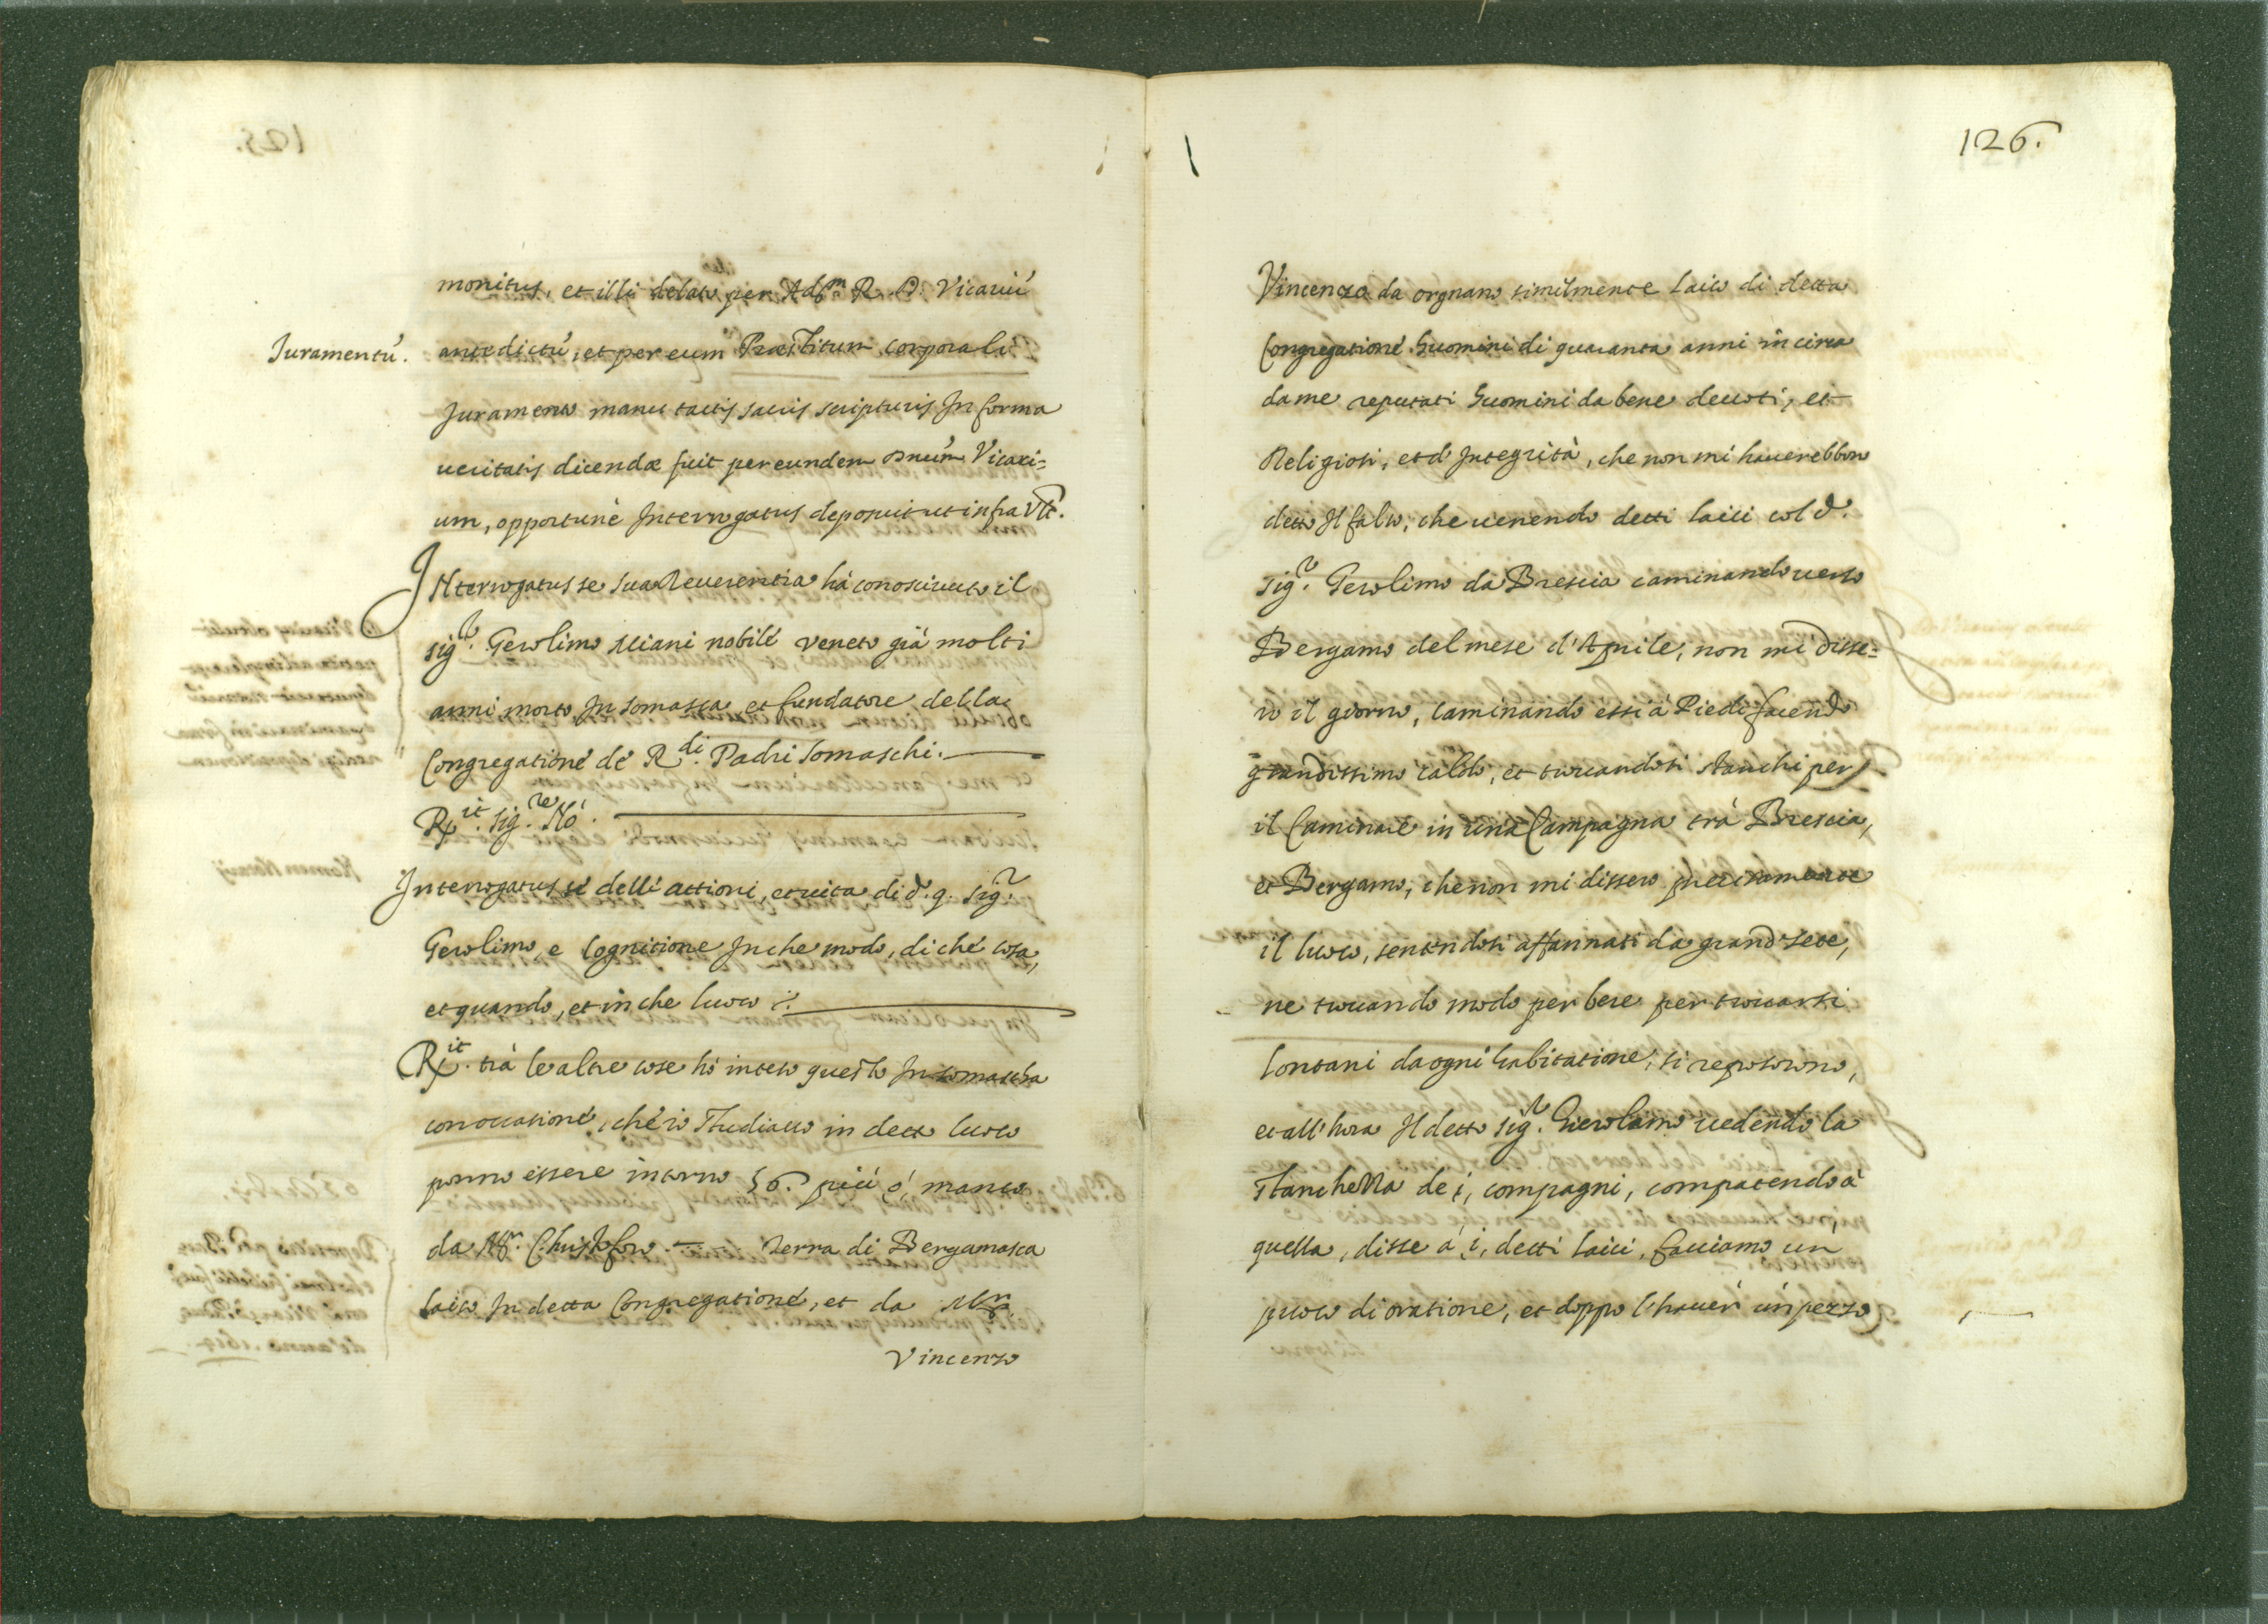 monitus, et illi delato per Ad.m R. D. Vicariũ
Juramentũ.
antedictũ, et per eum Præstitum corporali
Juramento manu tactis sacris scripturis In forma
ueritatis dicendæ fuit per eundem Dnũm Vicari=
um, opportunè Interrogatus deposuit ut infra Vtt.
INterrogatus se sua Reuerentia hà conosciuuto il
sig.r Gerolimo Miani nobile veneto già molti
anni morto In somasca et fundatore della
Congregatione de R.di Padri somaschi.
Rx.it sig.re Nò.
Interrogatus se delle attioni, et uita di d. q. sig.r
Gerolimo, e cognitione In che modo, di che cosa,
et quando, et in che luoco.
Rx.it trà le altre cose hò inteso questo In somascha
con occasione, che io studiauo in detto luoco
ponno essere intorno 56. più ò, manco
da Mr. Christoforo — terra di Bergamasca
laico In detta Congregatione, et da Mr.
Vincenzo
126.
Vincenzo da orgnano similmente laico di detta
Congregatione huomini di quaranta anni in circa
da me reputati huomini da bene deuoti, et
Religiosi, et d'Integrità, che non mi hauerebbon
detto Il falso, che uenendo detti laici col d.
sig.r Gerolimo da Brescia caminando uerso
Bergamo del mese d'Aprile, non mi disse=
ro il giorno, caminando essi à Piedi facendo
grandissimo caldo, et trouandosi stanchi per
il Caminare in una Campagna trà Brescia,
et Bergamo, che non mi dissero precisamente
il luoco, sentendosi affannati da grand sete,
ne trouando modo per bere per trouarsi
lontani da ogni habitatione, si reposorono,
et all'hora Il detto sig.r Gierolamo uedendo la
stanchezza de i, compagni, compatendo à
quella, disse à i, detti laici, facciamo un
puoco di oratione, et doppo l'hauer un pezzo